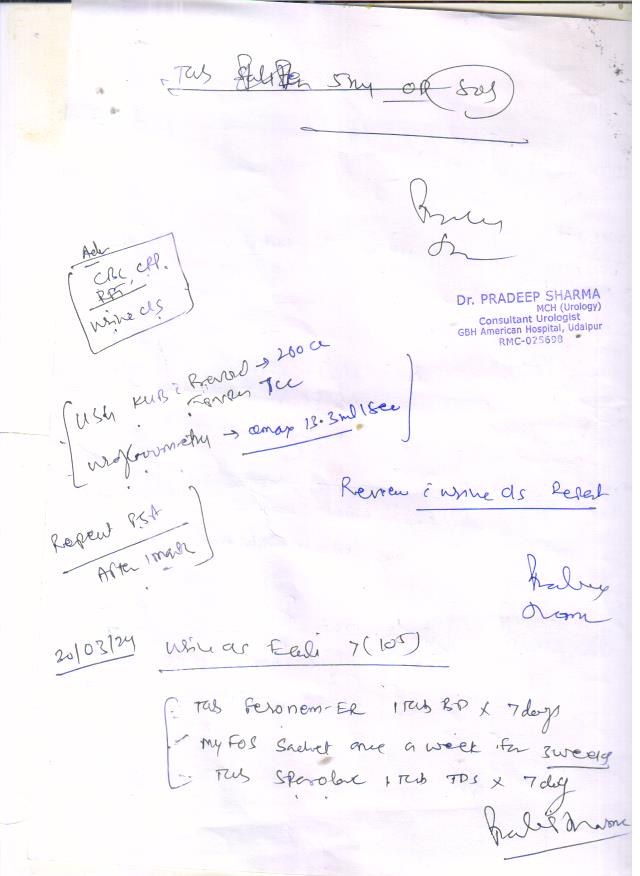 Tab 5mg OR SOS
Adv
CBC, CRP.
RFT
urine c/s
Dr. PRADEEP SHARMA
MCH (Urology)
Consultant Urologist
GBH American Hospital, Udaipur
RMC-025698
USG KUB c Prevoid → 200 cc
7cc
uroflowmetry → Qmax 13.3ml/sec
Review c urine c/s Report
Repeat PSA
After 1 month
20/03/24 urine cs Ecoli >(10⁵)
Tab Feronem-ER 1 tab BD x 7 days
MyFOS Sachet once a week for 3 weeks
Tab Sporolac 1 tab TDS x 7 day